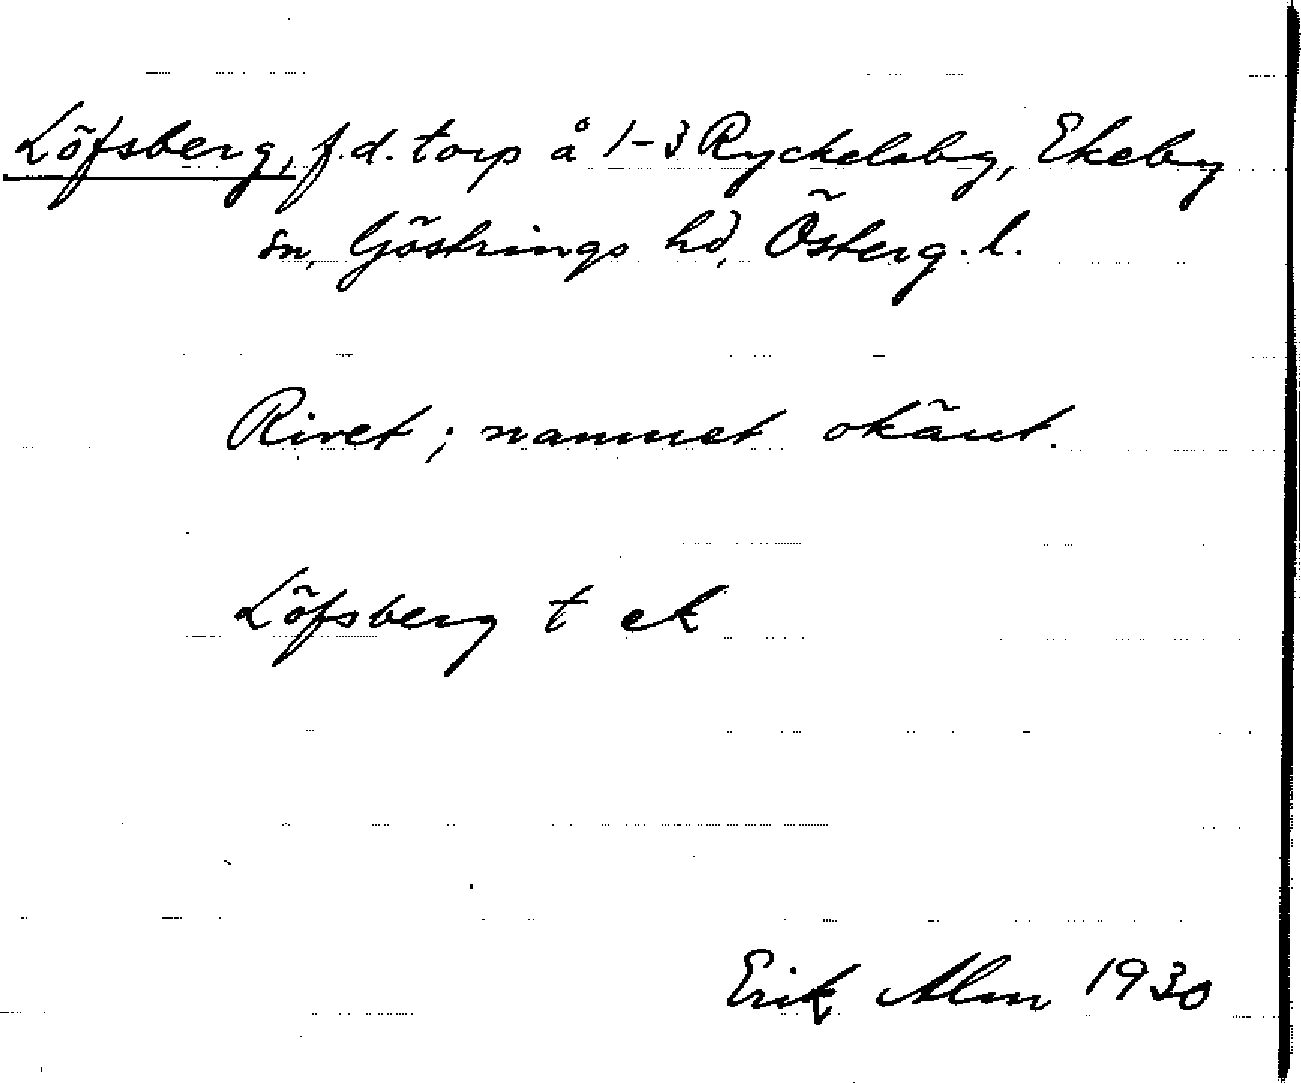 Löfsberg, f.d. torp å 1-3 Ryckelsby, Ekeby
sn, Göstrings hd, Österg. l.
Rivet; namnet okänt.
Löfsberg t ek
Erik Alm 1930